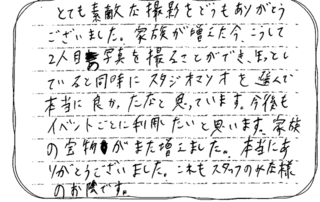 とても素敵な撮影をどうもありがとう
ございました。家族が増えた今、こうして
2人目の写真を撮ることができ、ホッとし
ていると同時にスタジオマリオを選んで
本当に良かったなと思っています。今後も
イベントごとに利用したいと思います。家族
の宝物がまた増えました。本当にあ
りがとうございました。これもスタッフの皆様
のお陰です。